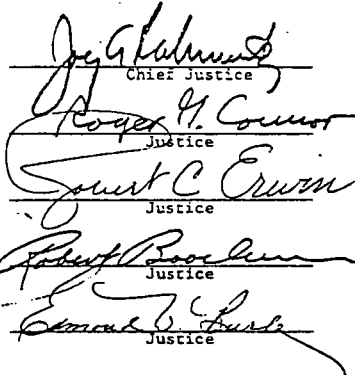 Jay A Rabinowitz
Chief Justice
Roger G. Connor
Justice
Robert C Erwin
Justice
Robert Boochever
Justice
Edmond W. Burke
Justice